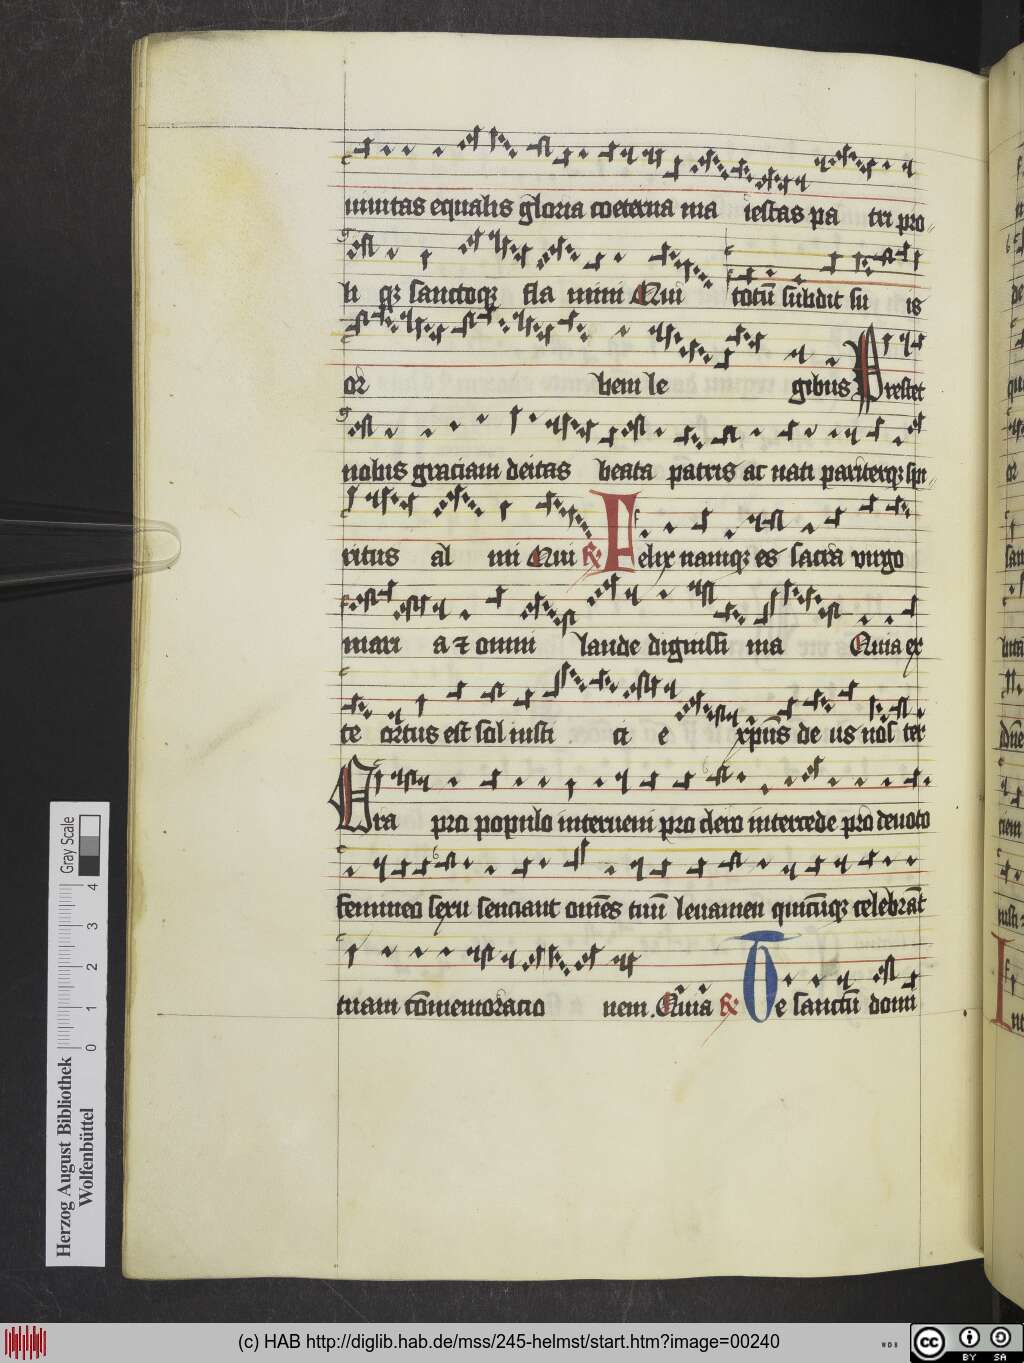 iunitas equalis gloria coeterna ma iestas pa tri pro-
li qꝫ sanctoqꝫ fla mini Qui totū subdit su is
or bem le gibus Prestet
nobis graciam deitas beata patris ac nati pariterqꝫ spi-
ritus al mi Qui ℟ Felix namqꝫ es sacra virgo
mari a ⁊ omni laude dignissi ma Quia ex
te ortus est sol iusti ci e xp̄us de us nōs ter
Ora pro populo interueni pro clero intercede pro deuoto
femineo sexu senciant om̄es tuū leuamen quicūqꝫ celebrāt
tuam cōmemoracio nem. Quia ℟ Te sanctū domi
Gray Scale
0 1 2 3 4
Herzog August Bibliothek
Wolfenbüttel
(c) HAB http://diglib.hab.de/mss/245-helmst/start.htm?image=00240
WDB
cc BY SA